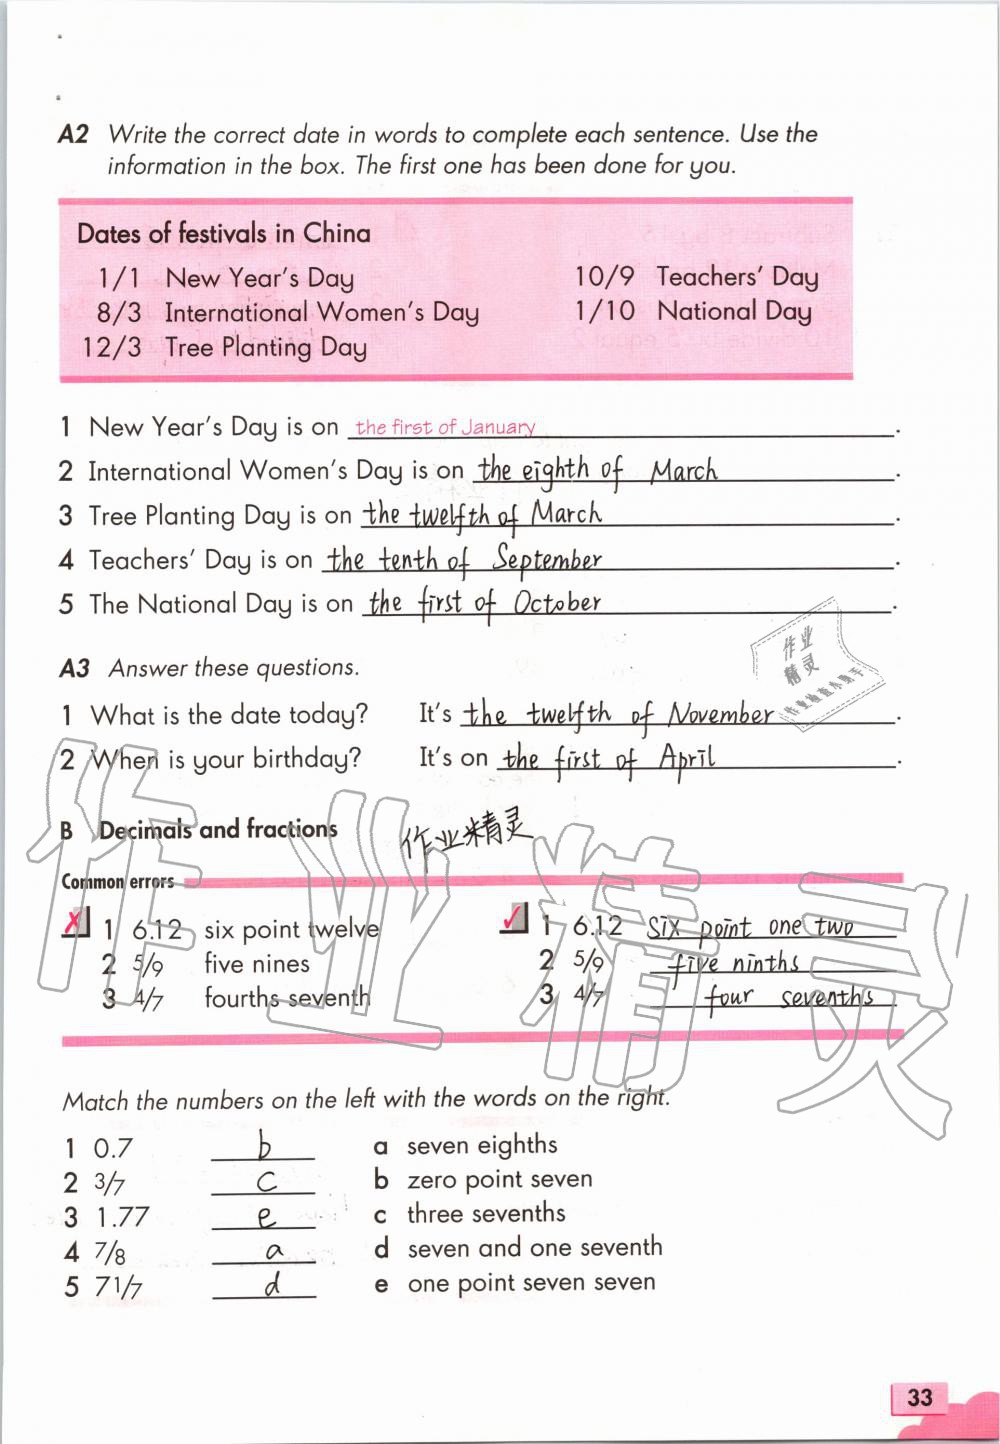 A2 Write the correct date in words to complete each sentence. Use the
information in the box. The first one has been done for you.
Dates of festivals in China
1/1 New Year's Day 10/9 Teachers' Day
8/3 International Women's Day 1/10 National Day
12/3 Tree Planting Day
1 New Year's Day is on the first of January.
2 International Women's Day is on the eighth of March.
3 Tree Planting Day is on the twelfth of March.
4 Teachers' Day is on the tenth of September.
5 The National Day is on the first of October.
作业
精灵
A3 Answer these questions.
1 What is the date today? It's the twelfth of November.
2 When is your birthday? It's on the first of April.
B Decimals and fractions 作业精灵
Common errors
✗ 1 6.12 six point twelve ✓ 1 6.12 six point one two
2 5/9 five nines 2 5/9 five ninths
3 4/7 fourths seventh 3 4/7 four sevenths
作业精灵
Match the numbers on the left with the words on the right.
1 0.7 b a seven eighths
2 3/7 c b zero point seven
3 1.77 e c three sevenths
4 7/8 a d seven and one seventh
5 71/7 d e one point seven seven
33